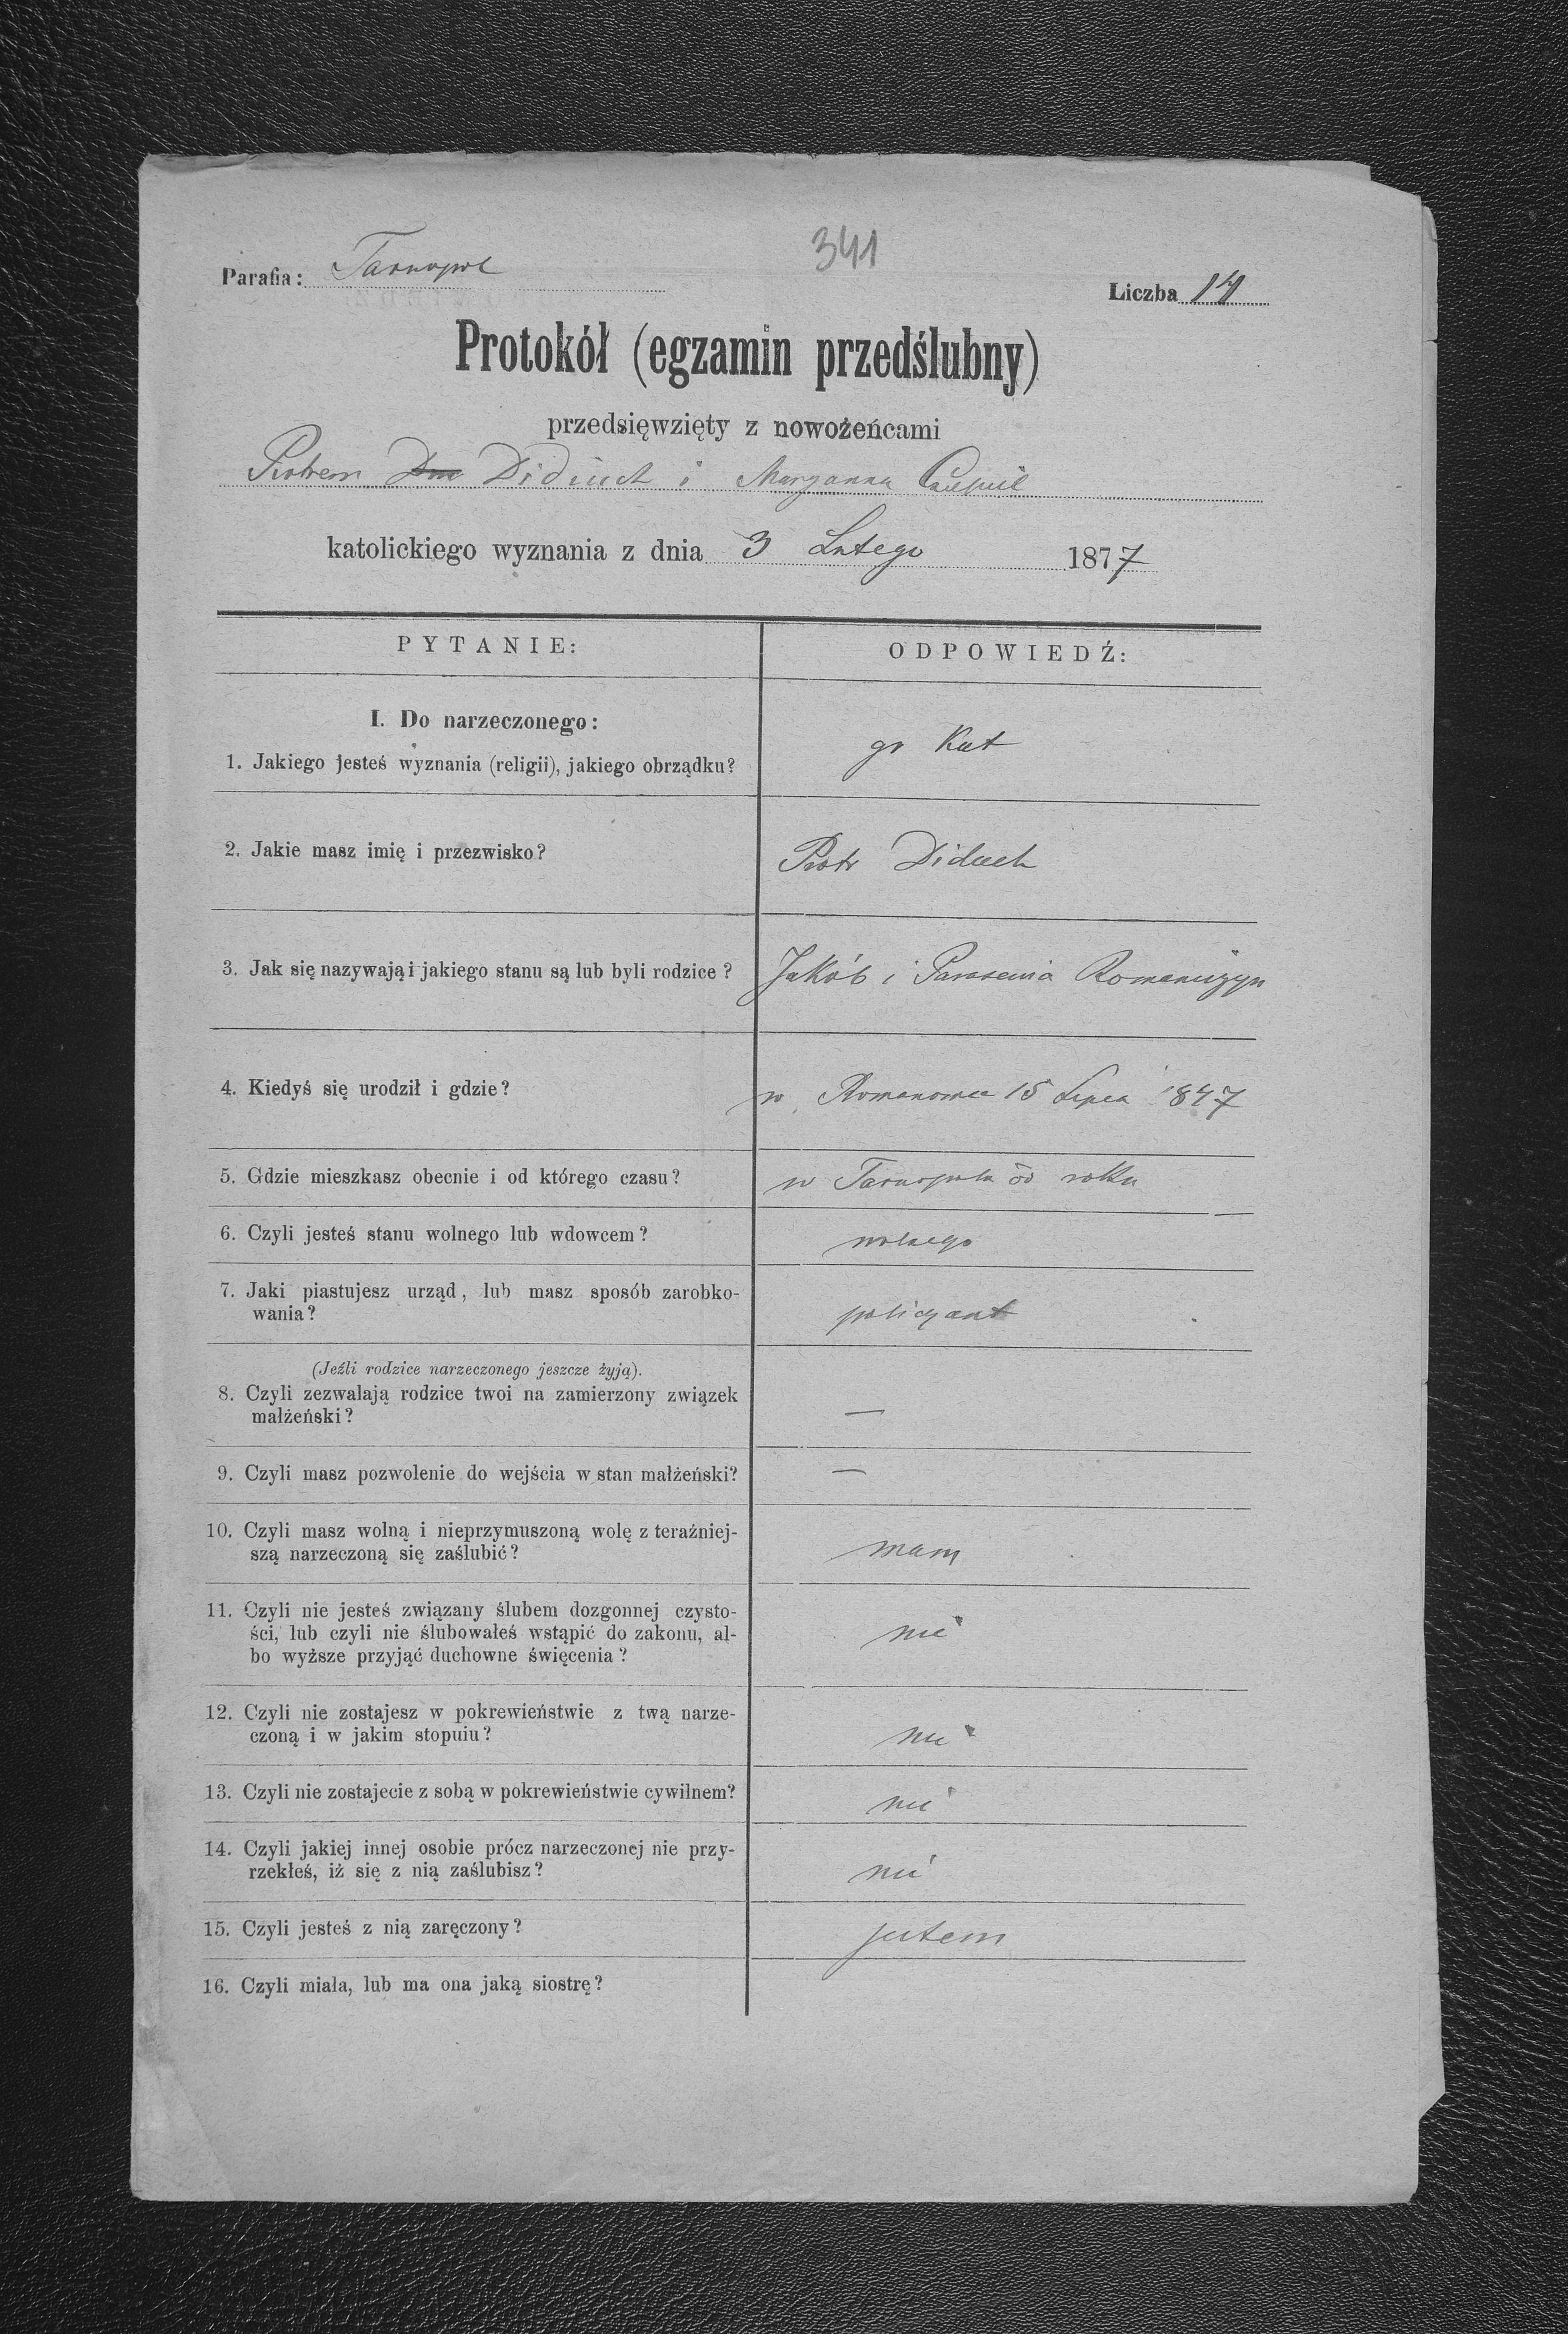 341
Parafia: Tarnopol
Liczba 14
Protokół (egzamin przedślubny)
przedsięwzięty z nowożeńcami
Piotrem Diduch i Maryanna
katolickiego wyznania z dnia 3 Lutego 1877
PYTANIE:
ODPOWIEDŹ:
I. Do narzeczonego:
1. Jakiego jesteś wyznania (religii), jakiego obrządku?
gr Kat
2. Jakie masz imię i przezwisko?
Piotr Diduch
3. Jak się nazywają i jakiego stanu są lub byli rodzice?
Jakób i Parasewia
4. Kiedyś się urodził i gdzie?
w 15 Lipca 1847
5. Gdzie mieszkasz obecnie i od którego czasu?
w Tarnopolu od roku
6. Czyli jesteś stanu wolnego lub wdowcem?
wolnego
7. Jaki piastujesz urząd, lub masz sposób zarobko-
wania?
policyant
(Jeźli rodzice narzeczonego jeszcze żyją).
8. Czyli zezwalają rodzice twoi na zamierzony związek
małżeński?
—
9. Czyli masz pozwolenie do wejścia w stan małżeński?
—
10. Czyli masz wolną i nieprzymuszoną wolę z teraźniej-
szą narzeczoną się zaślubić?
mam
11. Czyli nie jesteś związany ślubem dozgonnej czysto-
ści, lub czyli nie ślubowałeś wstąpić do zakonu, al-
bo wyższe przyjąć duchowne święcenia?
nie
12. Czyli nie zostajesz w pokrewieństwie z twą narze-
czoną i w jakim stopuiu?
nie
13. Czyli nie zostajecie z sobą w pokrewieństwie cywilnem?
nie
14. Czyli jakiej innej osobie prócz narzeczonej nie przy-
rzekłeś, iż się z nią zaślubisz?
nie
15. Czyli jesteś z nią zaręczony?
jestem
16. Czyli miała, lub ma ona jaką siostrę?